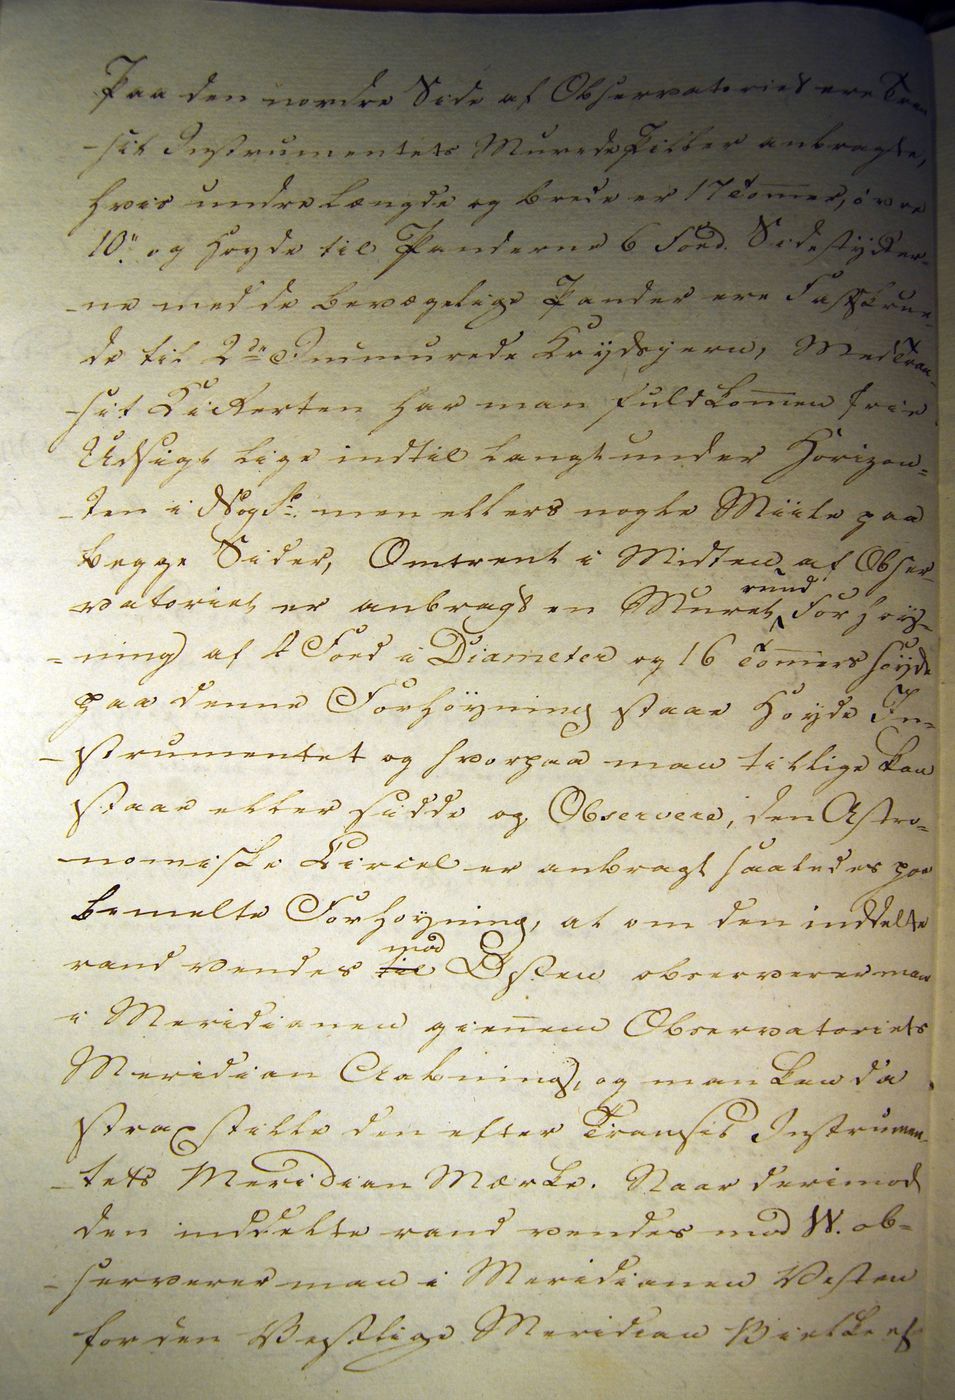 Paa den nordre Side af Observatoriet ere Tran
-sit Instrumentets Murede Piller anbragte,
hvis undre Længde og brede er 17 Tom̅er, øvre
10". og Høyde til Panderne 6 Foed. Sidestykker-
-ne med de bevægelige Pander ere Fastskrue-
de til 2de Immurede Krydsjern, Med Tran-
-sit Kickerten har man fuldkom̅en frie
Udsigt lige indtil langt under Horizon=
-ten i N og S. men ellers nogle Miile paa
begge Sider, Omtrent i Midten af Obser-
vatoriet er anbragt en Muret rund Forhøy=
=ning af Foed i Diameter og 16 Tom̅ers høyde
paa denne Forhøyning staar Høyde In=
-strumentet og hvorpaa man tillige kan
staae eller sidde og Observere, den Astro=
-nomiske Circel er anbragt saaledes paa
bemelte Forhøyning, at om den inddelte
rand vendes til mod Østen observerer man
i Meridianen gien̅em Observatoriets
Meridian Aabning, og man kan da
strax stille den efter Transit Instrumen-
-tets Meridian Mærke. Naar derimod
den inddelte rand vendes mod W. ob=
-serverer man i Meridianen Vesten
for den Vestlige Meridian Bielke af